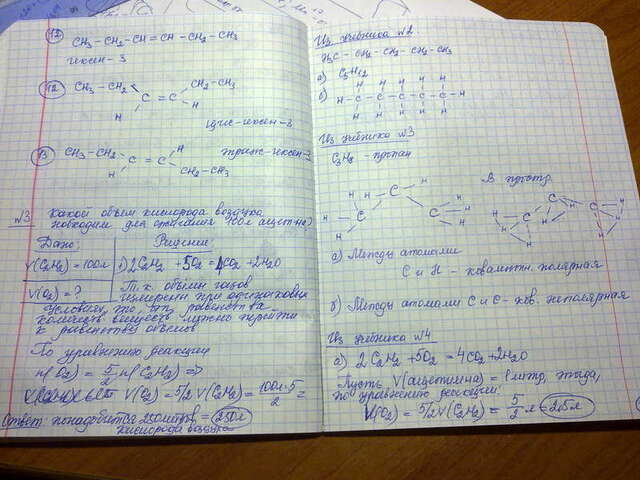 CH3 – CH2 – CH = CH – CH2 – CH3
гексен-3
12
CH3 – CH2
CH2 – CH3
C = C
H
H
цис-гексен-3
13
CH3 – CH2
H
C = C
H
CH2 – CH3
транс-гексен-3
№3 Какой объем кислорода воздуха
необходим для сжигания 100л ацетилена?
Дано:
Решение:
V(C2H2) = 100л
1) 2C2H2 + 5O2 = 4CO2 + 2H2O
V(O2) = ?
Т.к. объемы газов
измерены при одинаковых
условиях, то от равенства
количеств веществ можно перейти
к равенству объемов
По уравнению реакции
n(O2) = 5/2 n(C2H2) =>
V(O2) = 5/2 V(C2H2) = 100л·5/2 =
= 250л
Ответ: понадобится 250 литров
кислорода воздуха
Из учебника №2.
H3C – CH2 – CH2 – CH2 – CH3
а) C5H12
б)
H H H H H
H – C – C – C – C – C – H
H H H H H
Из учебника №3
C3H8 – пропан
В простр.
а) Между атомами
C и H – ковалентн. полярная
б) Между атомами C и C – ков. неполярная
Из учебника №4
а) 2C2H2 + 5O2 = 4CO2 + 2H2O
Пусть V(ацетилена) = 1литр, тогда,
по уравнению реакции:
V(O2) = 5/2 V(C2H2) = 5/2 л = 2,5л